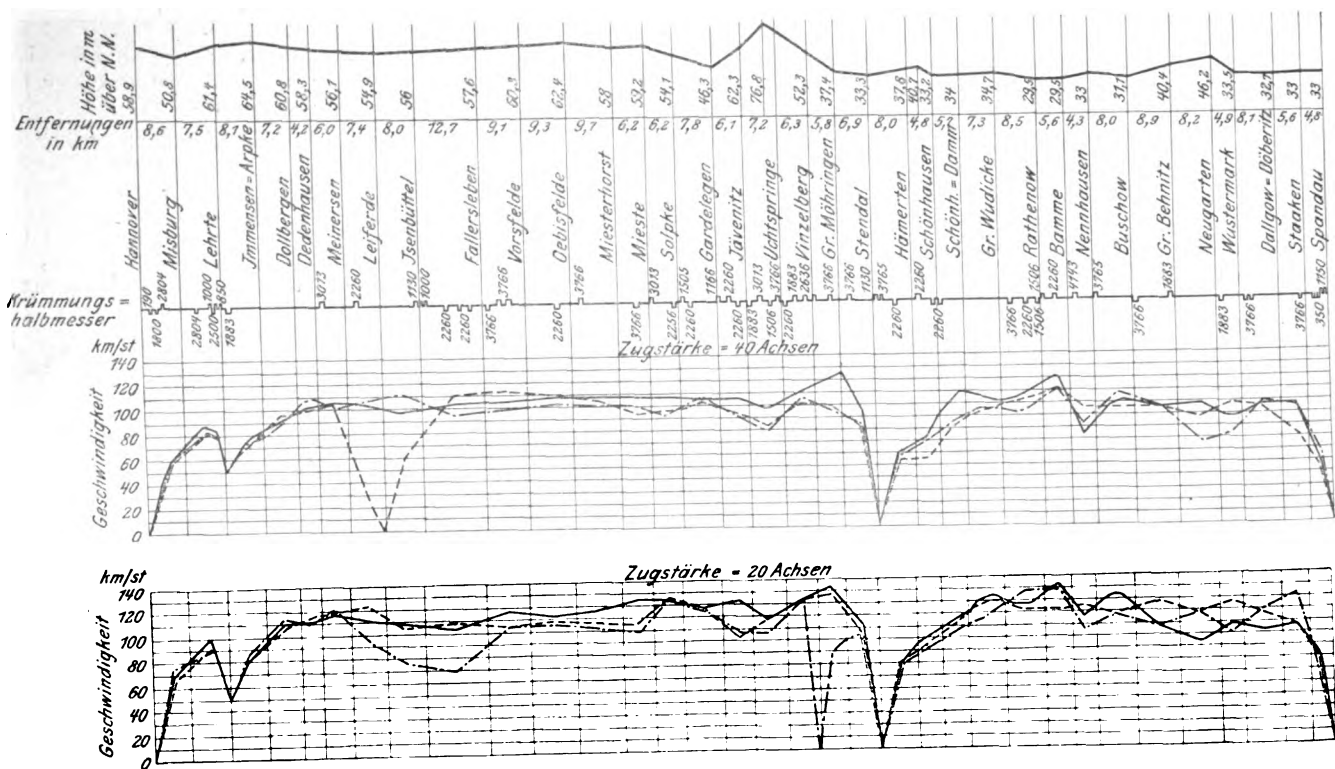 Höhe in m
über N.N.
58,9 50,8 61,4 64,5 60,8 58,3 56,1 54,9 56 57,6 60,3 62,4 58 59,2 54,1 46,3 62,3 76,8 52,3 37,4 33,3 37,6 40,7 33,2 34 34,7 29,5 29,5 33 31,1 40,4 46,2 33,5 32,7 33 33
Entfernungen
in km
8,6 7,5 8,1 7,2 4,2 6,0 7,4 8,0 12,7 9,1 9,3 9,7 6,2 6,2 7,8 6,1 7,2 6,3 5,8 6,9 8,0 4,8 5,2 7,3 8,5 5,6 4,3 8,0 8,9 8,2 4,9 8,1 5,6 4,8
Hannover Misburg Lehrte Jmmensen=Arpke Dollbergen Dedenhausen Meinersen Leiferde Jsenbüttel Fallersleben Vorsfelde Oebisfelde Miesterhorst Mieste Solpke Gardelegen Jävenitz Uchtspringe Vinzelberg Gr. Möhringen Stendal Hämerten Schönhausen Schönh.=Damm Gr. Wudicke Rathenow Bamme Nennhausen Buschow Gr. Behnitz Neugarten Wustermark Dallgow=Döberitz Staaken Spandau
Krümmungs=
halbmesser
390 2804 3000 650 3073 2260 1130 5000 3766 3766 3013 1505 1166 2260 3013 3766 1883 2636 3766 3766 1130 3765 2260 2506 2260 4743 3765 1883 3750
1800 2804 2500 1883 2260 2260 3766 2260 3766 2256 2260 2260 1883 1506 2260 2260 2260 3766 2260 1506 3766 1883 3766 3766 350
km/st
Zugstärke = 40 Achsen
Geschwindigkeit
140
120
100
80
60
40
20
0
km/st
Zugstärke = 20 Achsen
Geschwindigkeit
140
120
100
80
60
40
20
0